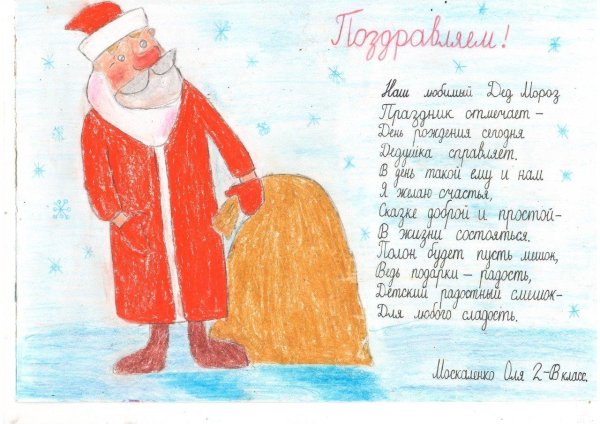 Поздравляем!
Наш любимый Дед Мороз
Праздник отмечает –
День рождения сегодня
Дедушка справляет.
В день такой ему и нам
Я желаю счастья,
Сказке доброй и простой–
В жизни состояться.
Полон будет пусть мешок,
Ведь подарки – радость,
Детский радостный смешок–
Для любого сладость.
Москаленко Оля 2-В класс.